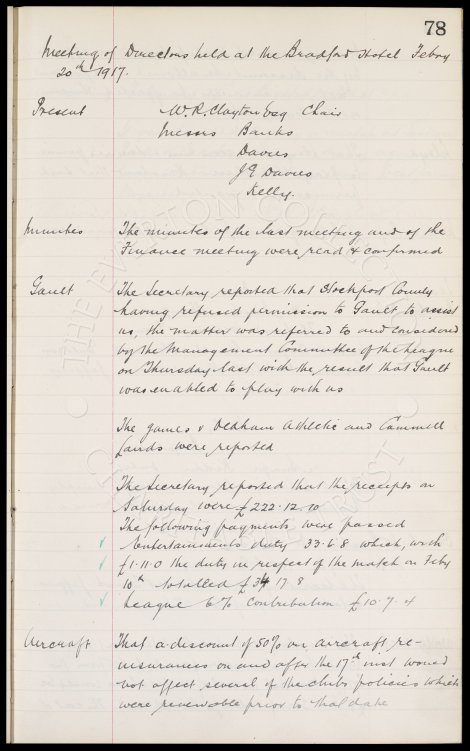 78
Meeting of Directors held at the Bradford Hotel Febry
20th 1917.
Present W. R. Clayton Esq Chair
Messrs Banks
Davies
J E Davies
Kelly.
Minutes The minutes of the last meeting and of the
Finance meeting were read & confirmed
Gault The Secretary reported that Stockport County
having refused permission to Gault to assist
us, the matter was referred to and considered
by the Management Committee of the League
on Thursday last with the result that Gault
was enabled to play with us
The games v Oldham Athletic and Cammell
Lairds were reported
The Secretary reported that the receipts on
Saturday were £222.12.10
The following payments were passed
✓ Entertainments duty 33.6.8 which, with
✓ £1.11.0 the duty in respect of the match on Feby
10th totalled £34 17 8
✓ League 6% Contribution £10.7.4
Aircraft That a discount of 50% on aircraft re-
insurances on and after the 17th inst would
not affect several of the clubs policies which
were renewable prior to that date
THE EVERTON COLLECTION
TRUST